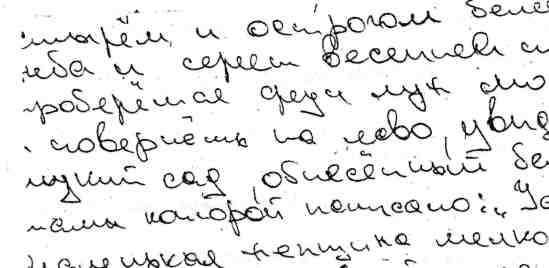 стырём, и острогом беле
неба и сереет весеннее п
роберёшься среди луж по
и повернёшь на лево, увид
низкий сад, обнесённый бе
тами которой написано: „Ус
маленькая женщина мелко